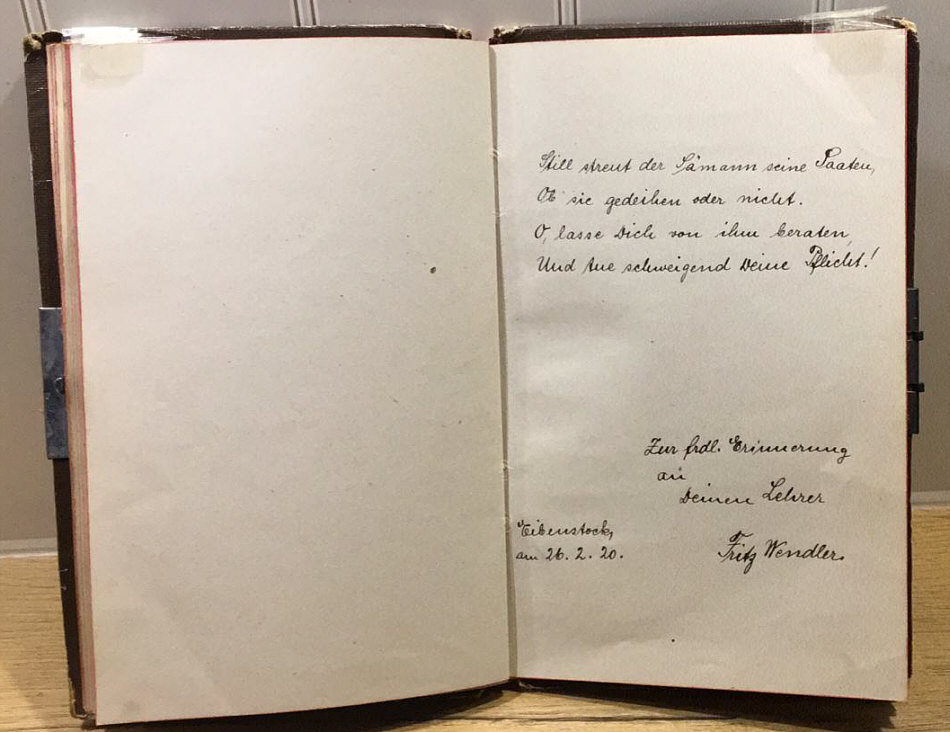 Still streut der Sämann seine Saaten,
Ob sie gedeihen oder nicht.
O, lasse Dich von ihm beraten,
Und tue schweigend Deine Pflicht!
Zur frdl. Erinnerung
an
Deinen Lehrer
Eibenstock,
am 26. 2. 20.
Fritz Wendler.